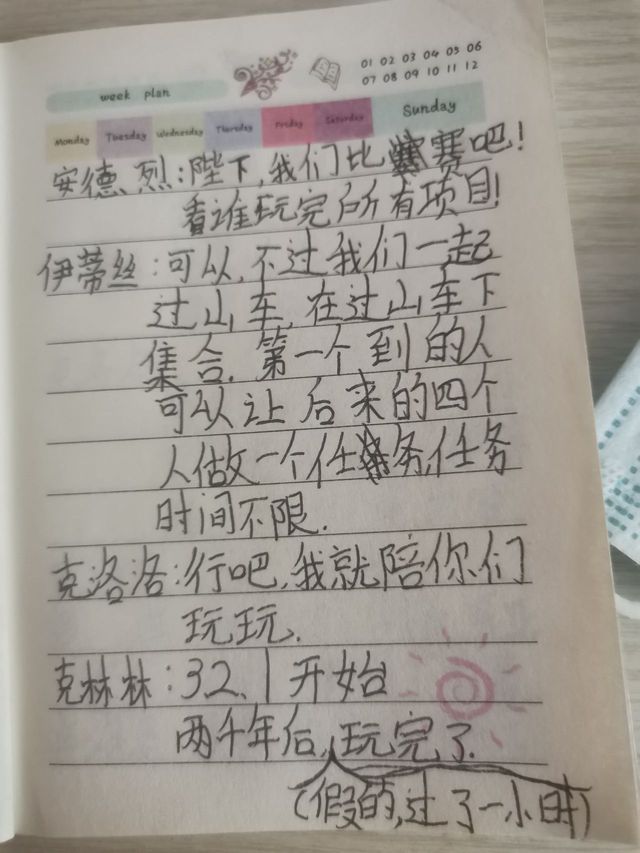 01 02 03 04 05 06
07 08 09 10 11 12
week plan
Monday Tuesday Wednesday Thursday Friday Saturday Sunday
安德烈:陛下,我们比赛吧!
看谁玩完所有项目!
伊蒂丝:可以,不过我们一起
过山车,在过山车下
集合.第一个到的人
可以让后来的四个
人做一个任务,任务
时间不限.
克洛洛:行吧,我就陪你们
玩玩.
克林林:32.1开始
两千年后,玩完了.
(假的,过了一小时)